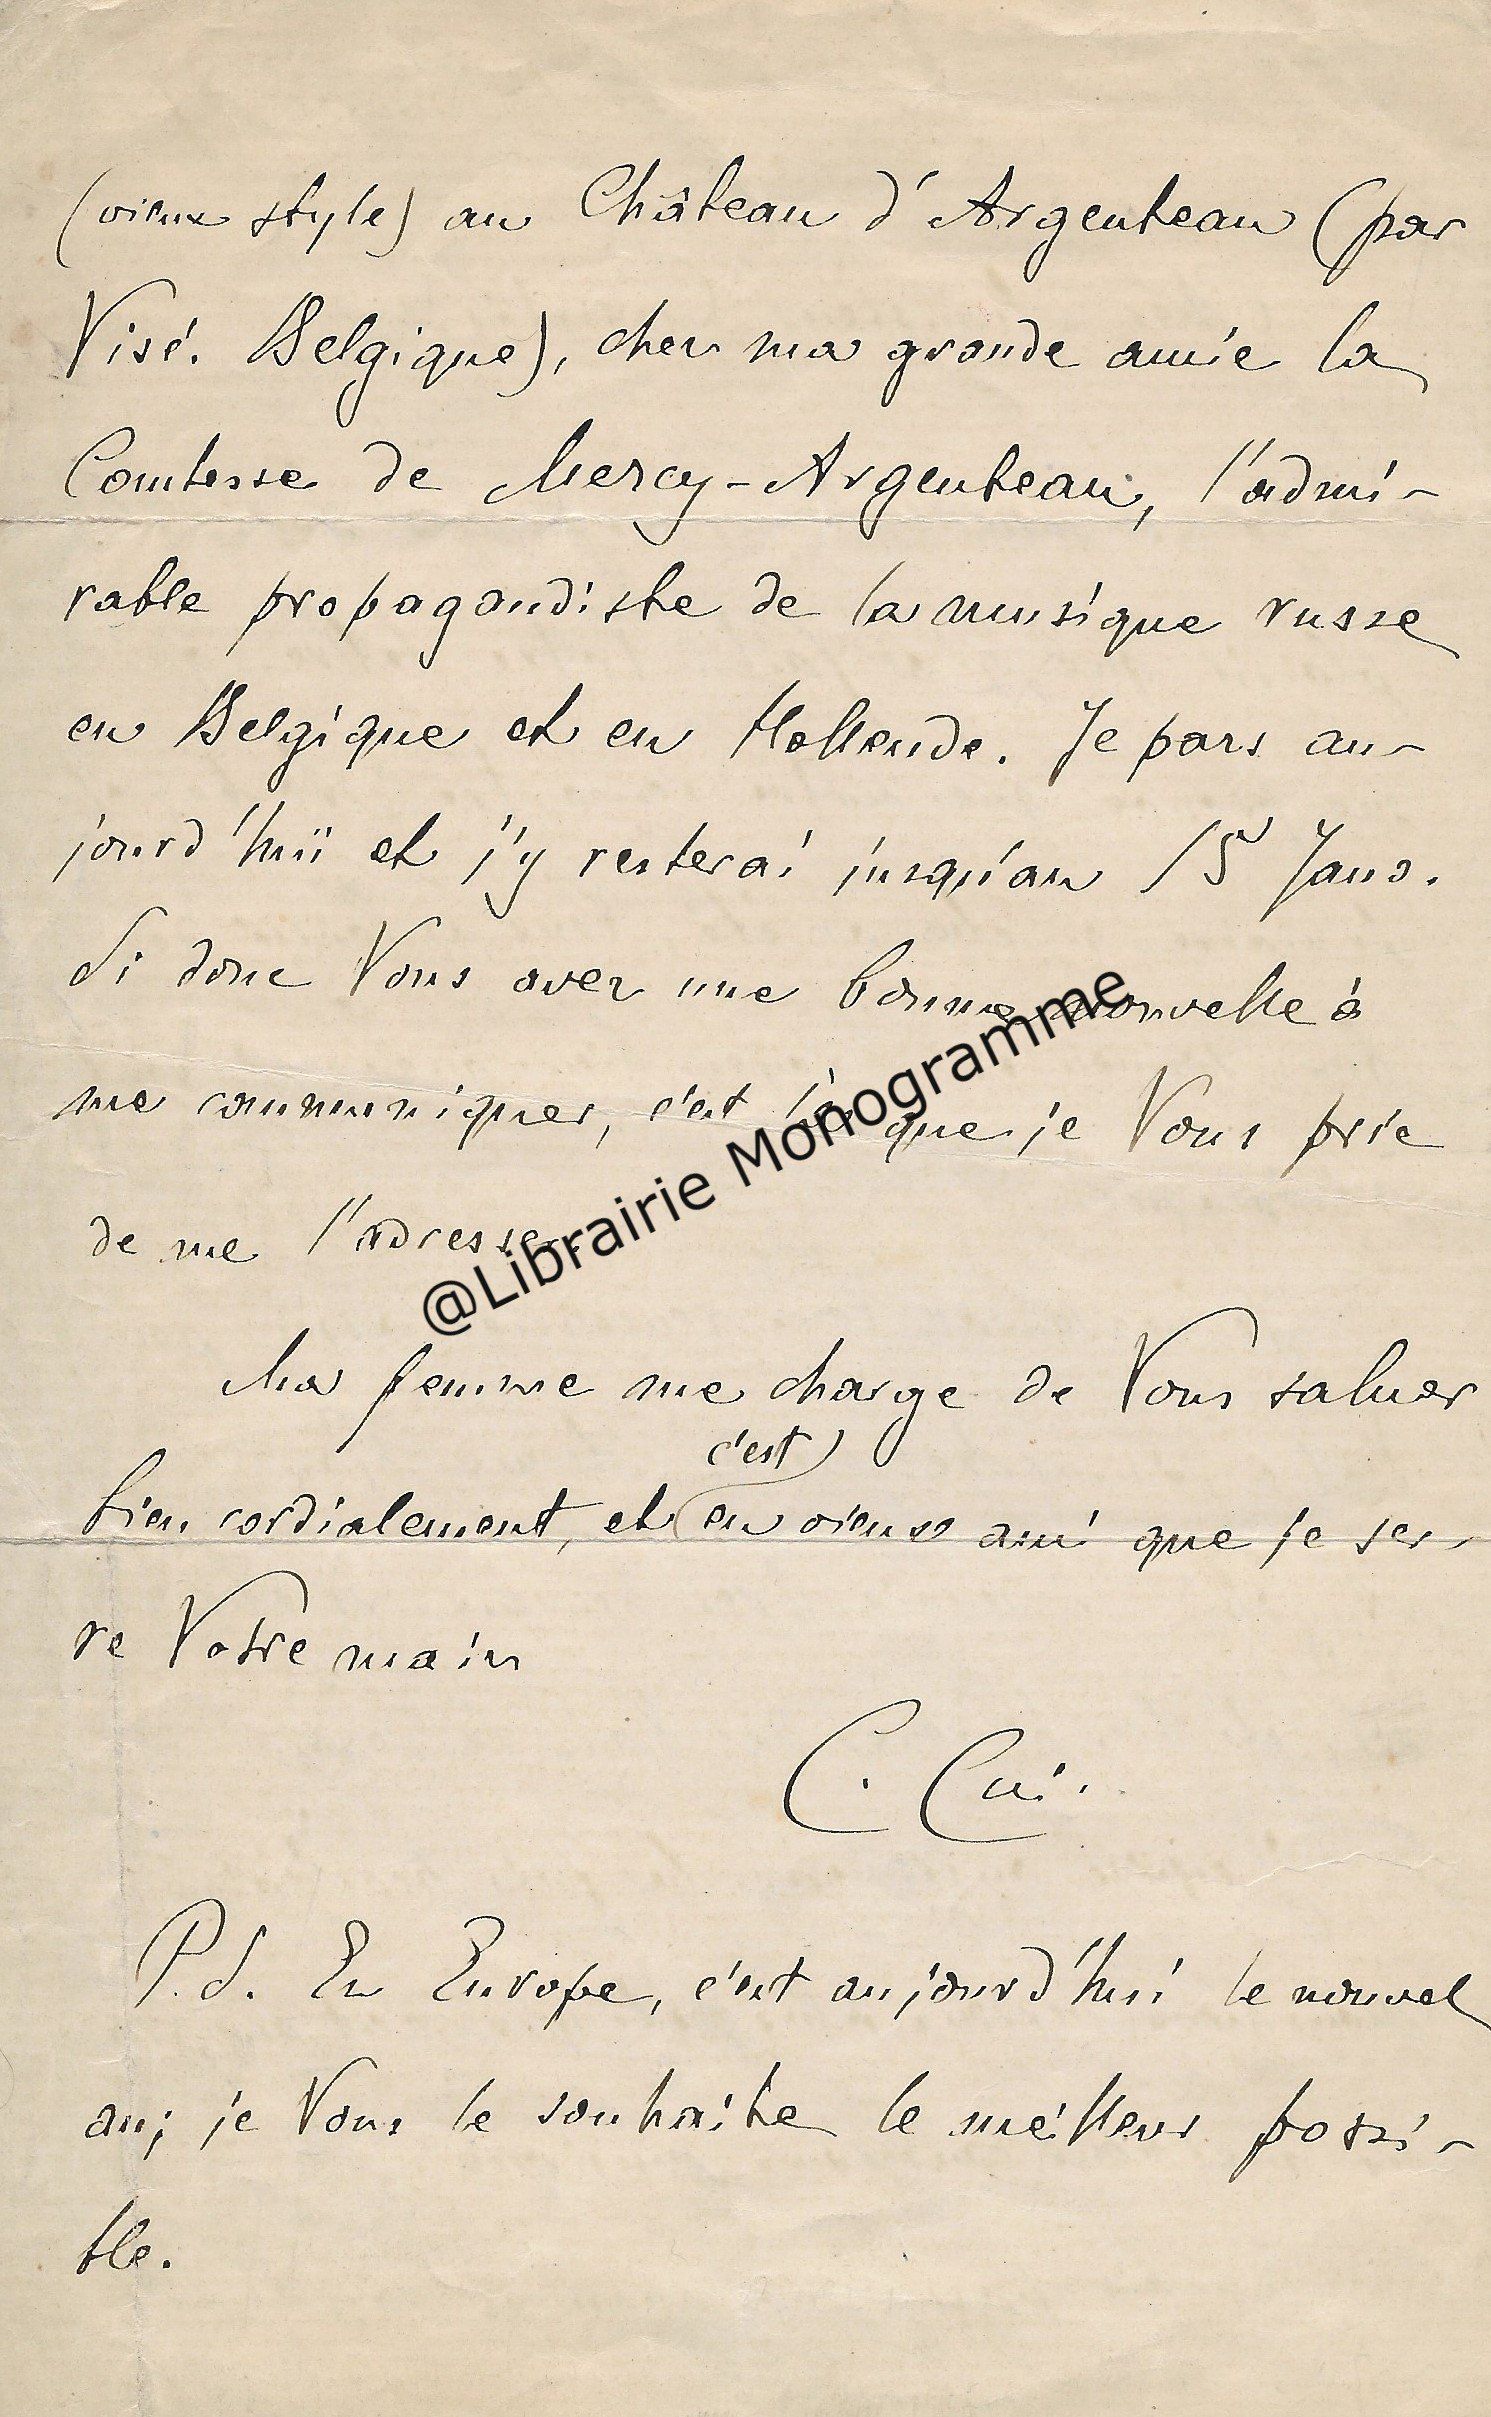 (vieux style) au Château d'Argenteau (par
Visé. Belgique), chez ma grande amie la
Comtesse de Mercy-Argenteau, l'admi-
rable propagandiste de la musique russe
en Belgique et en Hollande. Je pars au-
jourd'huï et j'y resterai jusqu'au 15 Janv.
Si donc Vous avez une bonne nouvelle à
me communiquer, c'est là que je Vous prie
de me l'adresser.
@Librairie Monogramme
Ma femme me charge de Vous saluer
c'est
bien cordialement, et en vieux ami que je ser-
re Votre main
C. Cui.
P.S. En Europe, c'est aujourd'hui le nouvel
an; je Vous le souhaite le meilleur possi-
ble.